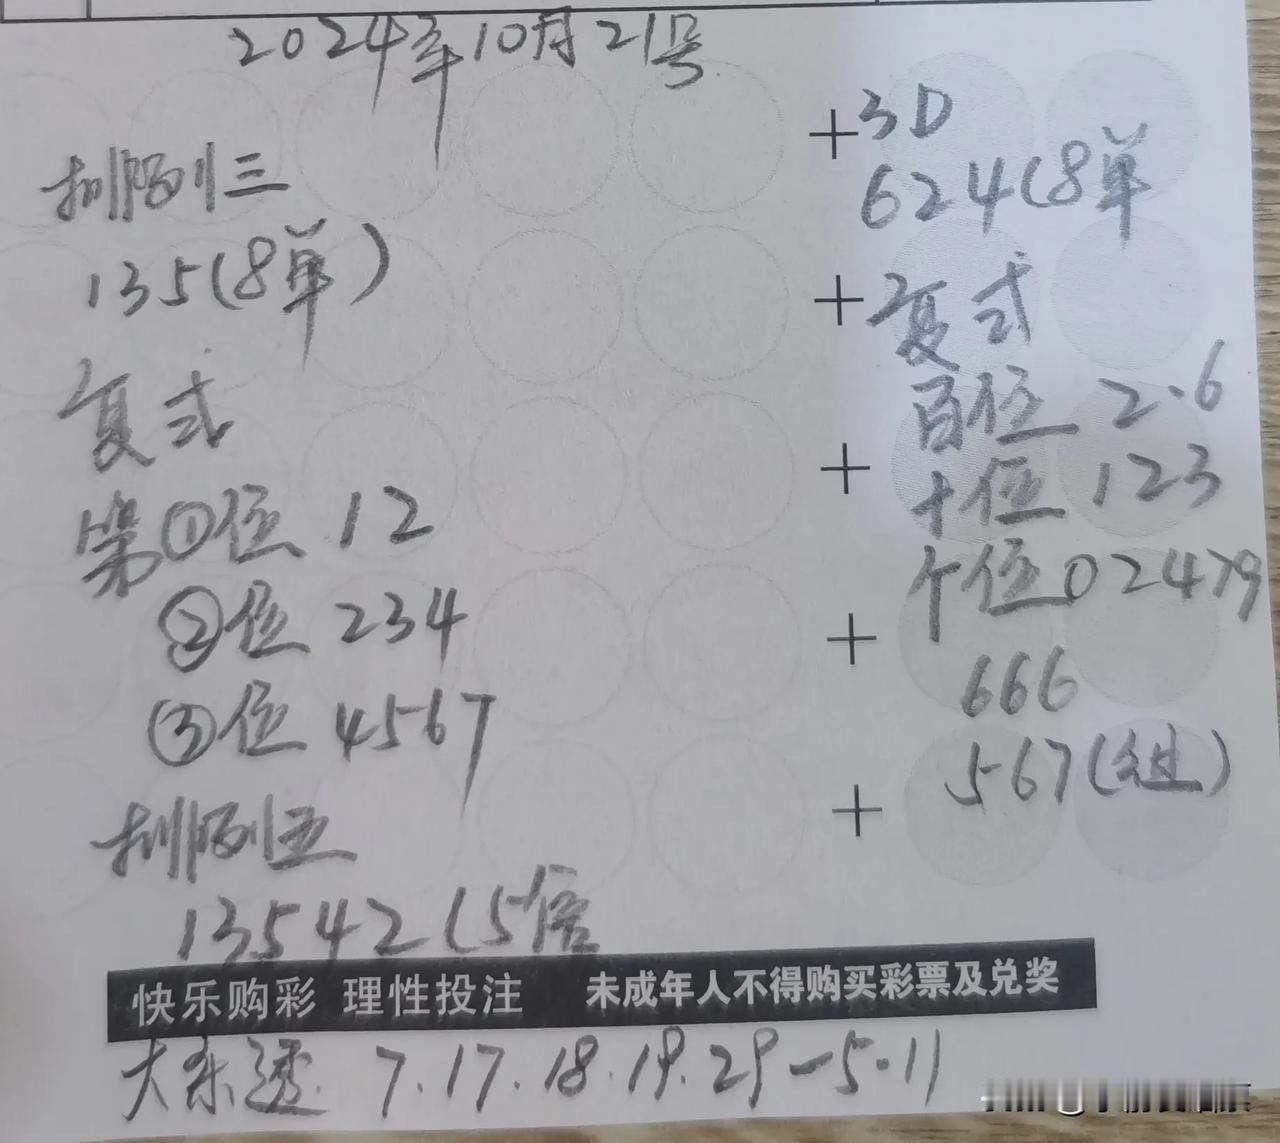 2024年10月21号
排列三
135(8单)
复式
第①位 12
②位 234
③位 4567
排列五
13542(5倍
+3D
624(8单
+复式
百位 2·6
+
十位 123
个位02479
+
666
567(组)
+
快乐购彩 理性投注 未成年人不得购买彩票及兑奖
大乐透 7.17.18.19.29-5·11